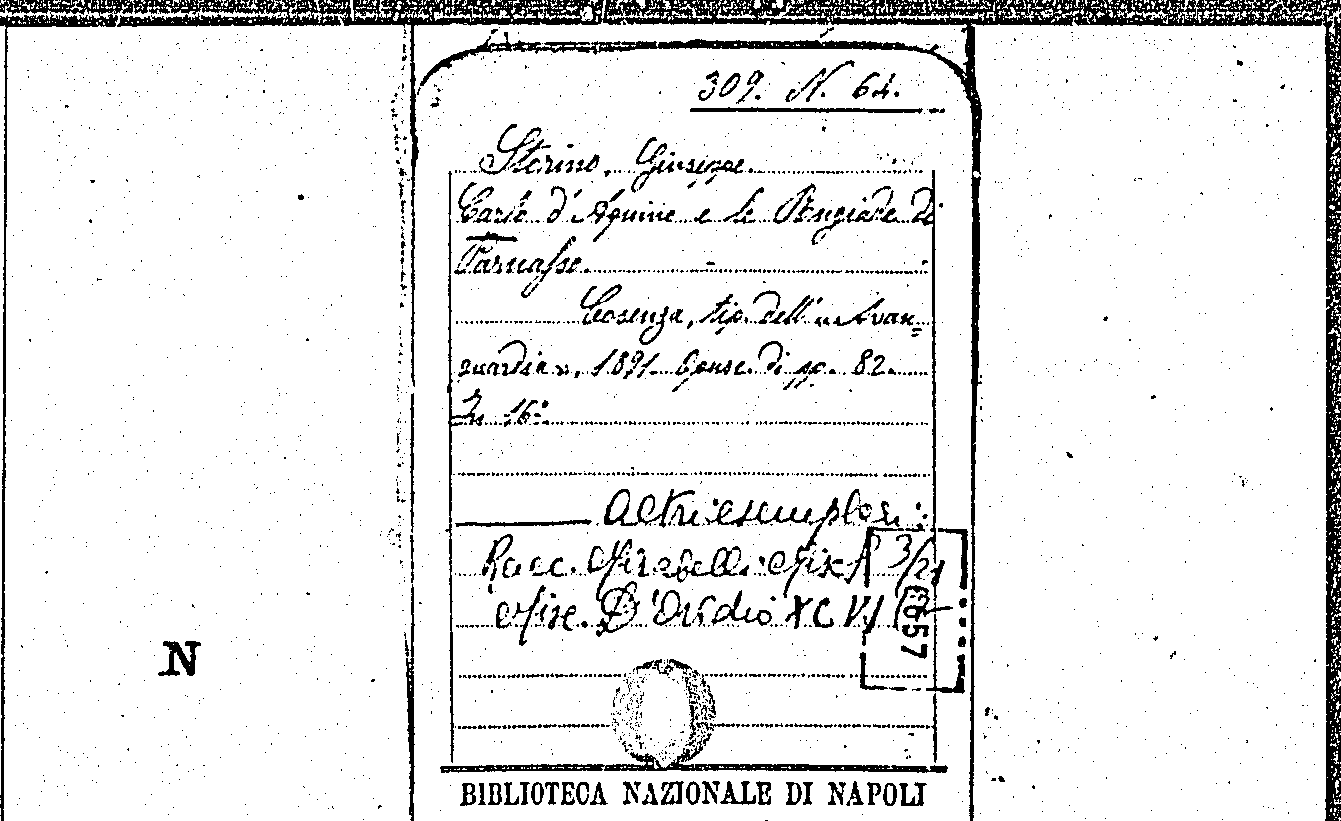 309. N. 64.
Storino, Giuseppe.
Carlo d'Aquino e le Angiade di
Parnasso.
Cosenza, tip. dell' "Avan=
guardia", 1891. Opusc. di pp. 82.
In 16º.
Altri esemplari:
Racc. Mirabelli Misc. A 3/21
Misc. D'Ovidio XCVI
657
N
BIBLIOTECA NAZIONALE DI NAPOLI